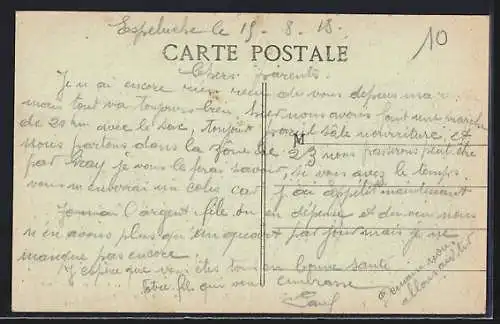 Espeluche le 19 . 8 . 18.
10
CARTE POSTALE
Chers parents.
Je n ai encore rien reçu de vous depuis ma
main tout va toujours bien. hier nous avons fait une marche
de 20 km avec le sac, Toujours pareil sale nourriture, et
nous partons dans la zône le 23 nous passerons peut être
par je vous le ferai savoir, si vous avez le temps.
vous m enverrai un colis car j ai appétit maintenant
l argent file on en dépense et demain nous
n en avons plus qu'un quart par jour mais je ne
manque pas encore.
J espère que vous êtes tous en bonne santé
Votre fils qui vous embrasse
M
allons au tir